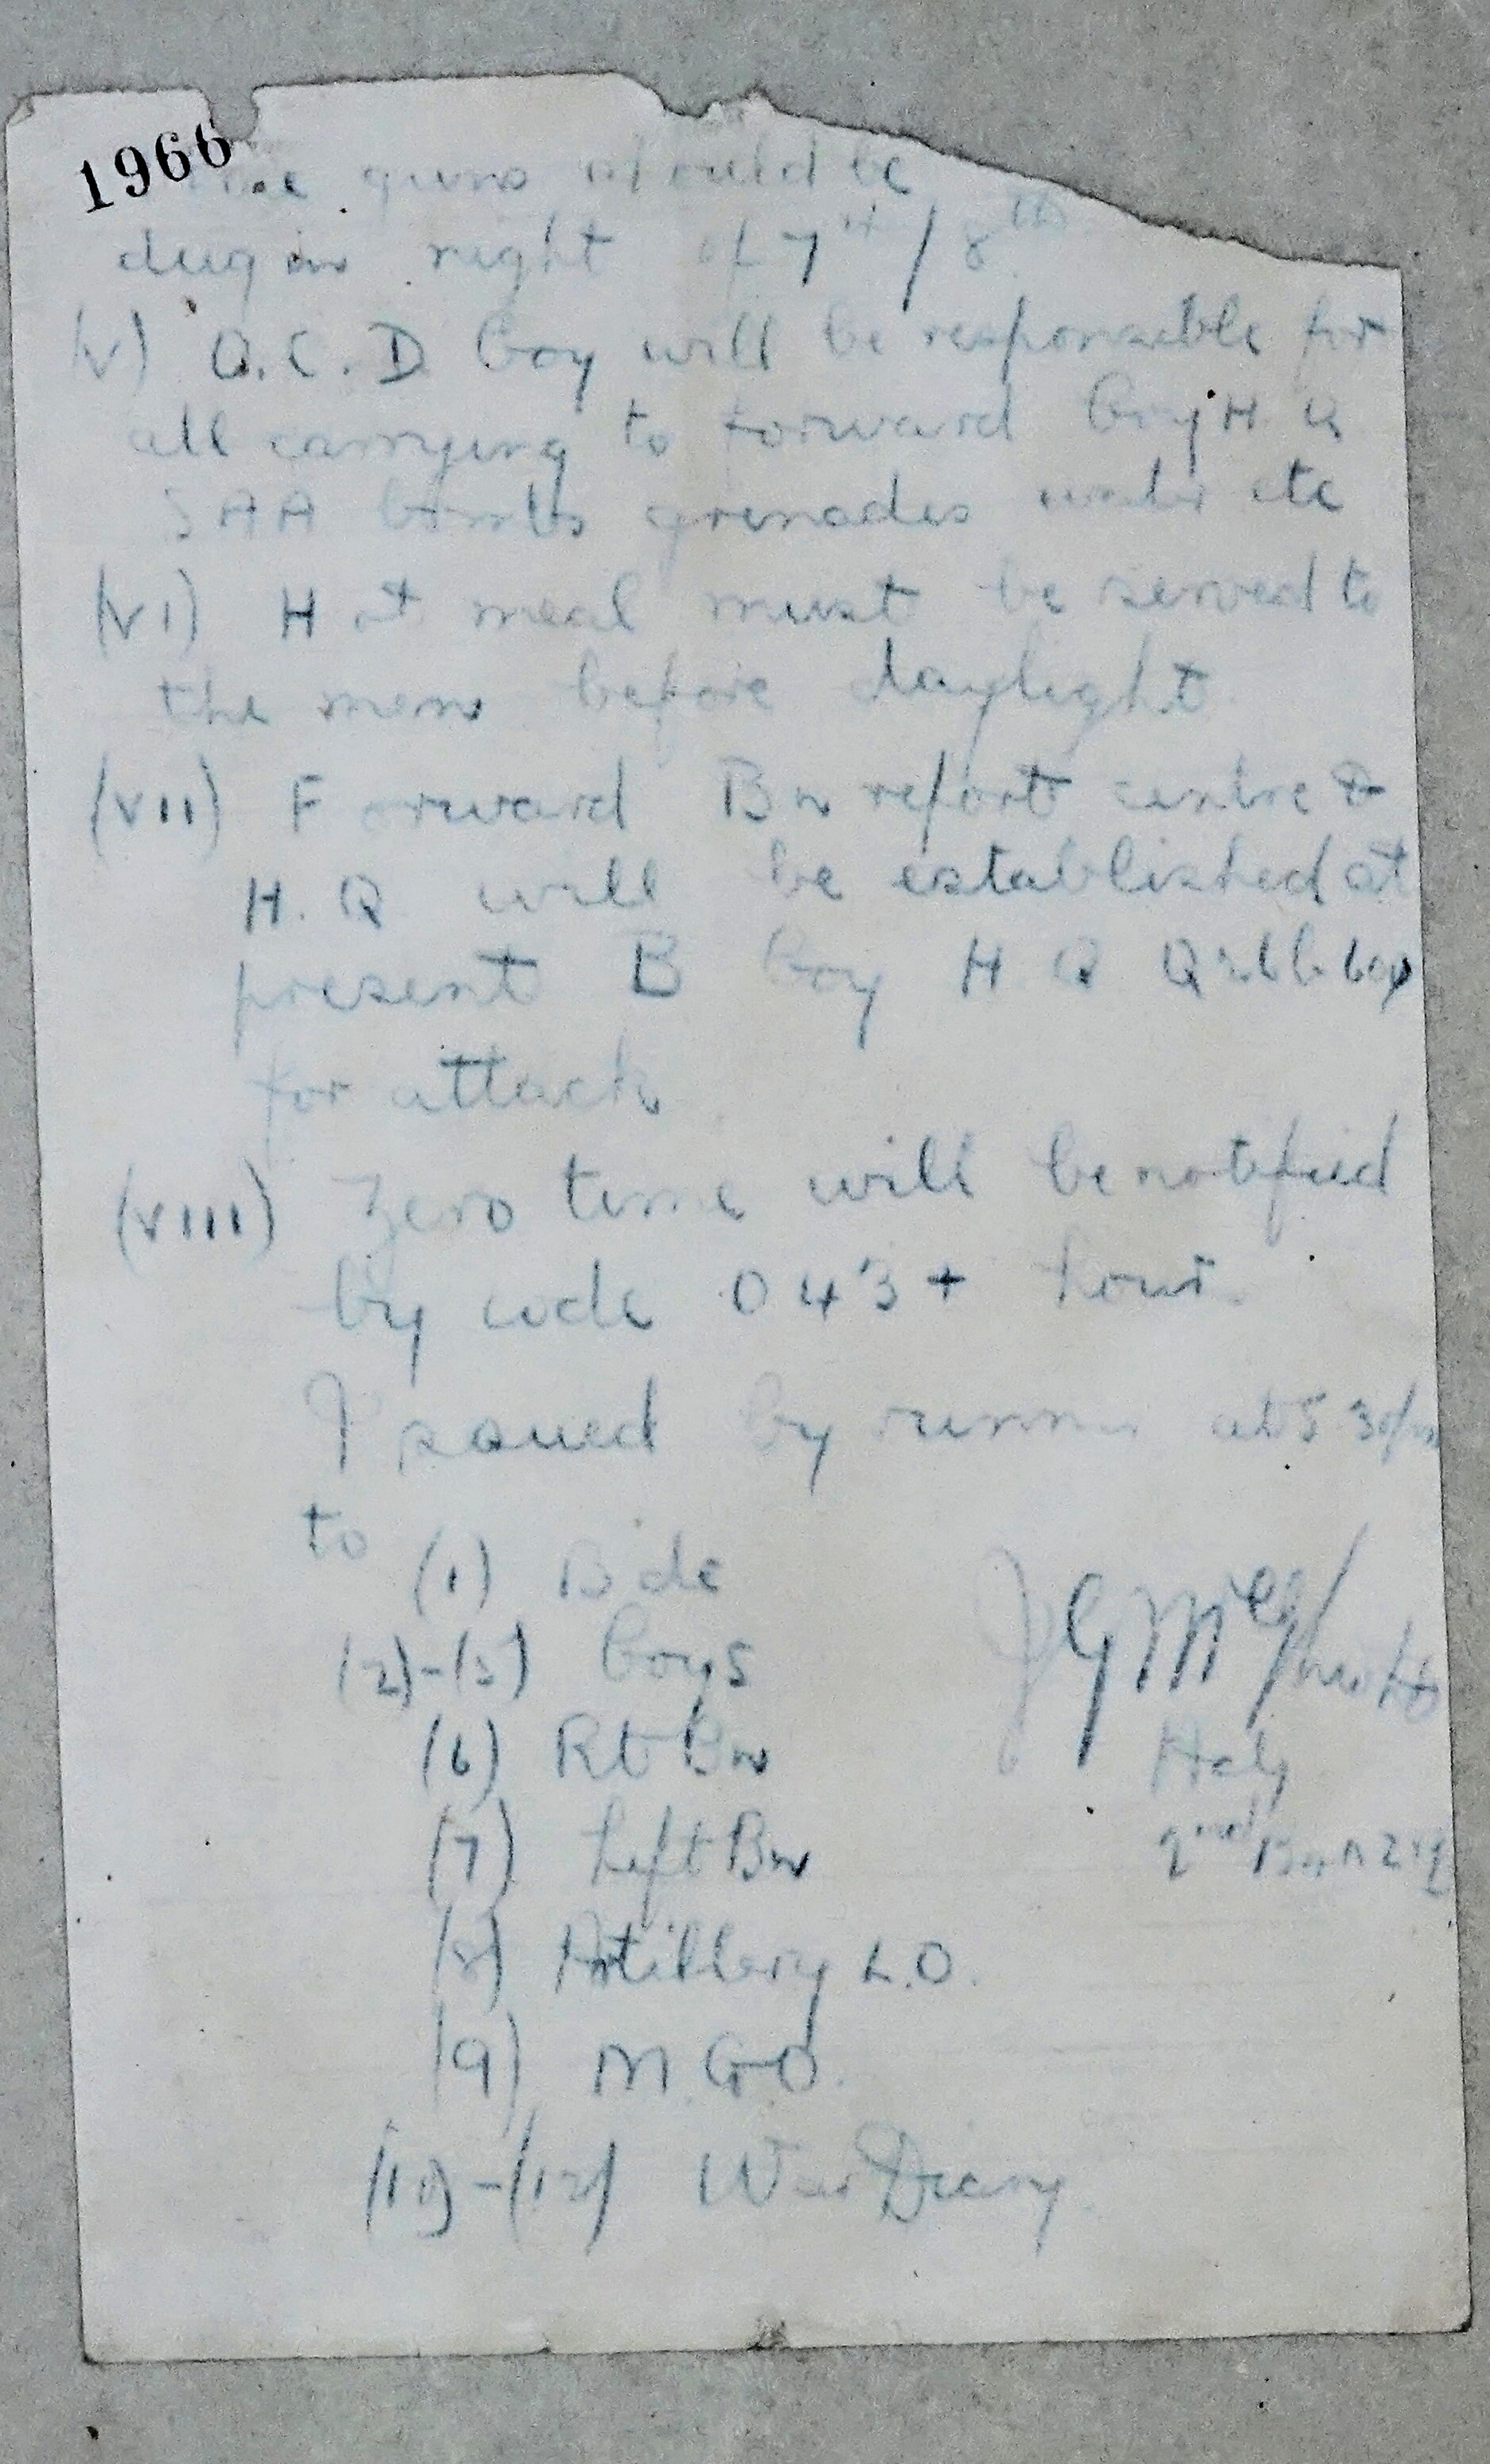 1966
guns should be
dug in right of 7th / 8th
(V) O.C. D Coy will be responsible for
all carrying to forward Coy H.Q
SAA bombs grenades water etc
(VI) Hot meal must be served to
the men before daylight
(VII) Forward Bn report centre &
H.Q will be established at
present B Coy H Q
for attack
(VIII) Zero time will be notified
by code 043 + hour.
Issued by runner at 5 30pm
to
(1) Bde
(2)-(5) Coys
(6) Rt Bn
(7) Left Bn
(8) Artillery L.O.
(9) M.G.O.
(10)-(12) War Diary
J G
Adj
2nd Bn